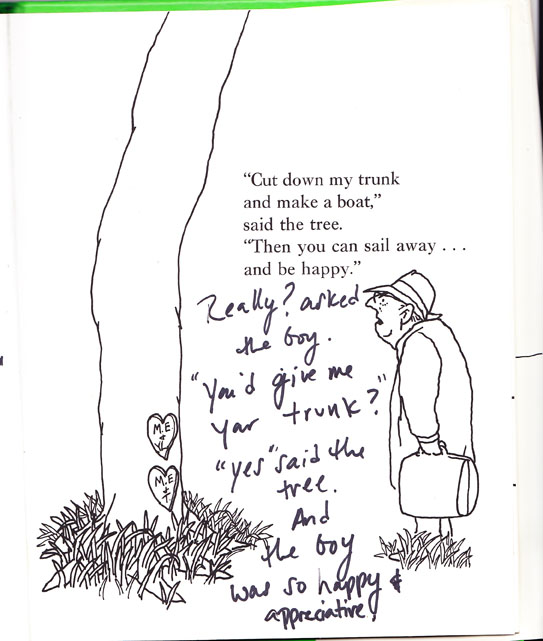 “Cut down my trunk
and make a boat,”
said the tree.
“Then you can sail away . . .
and be happy.”
Really? asked
the boy.
"You'd give me
your trunk?"
"yes" said the
tree.
And
the boy
was so happy &
appreciative!
M.E
+
Y.L
M.E
+
T